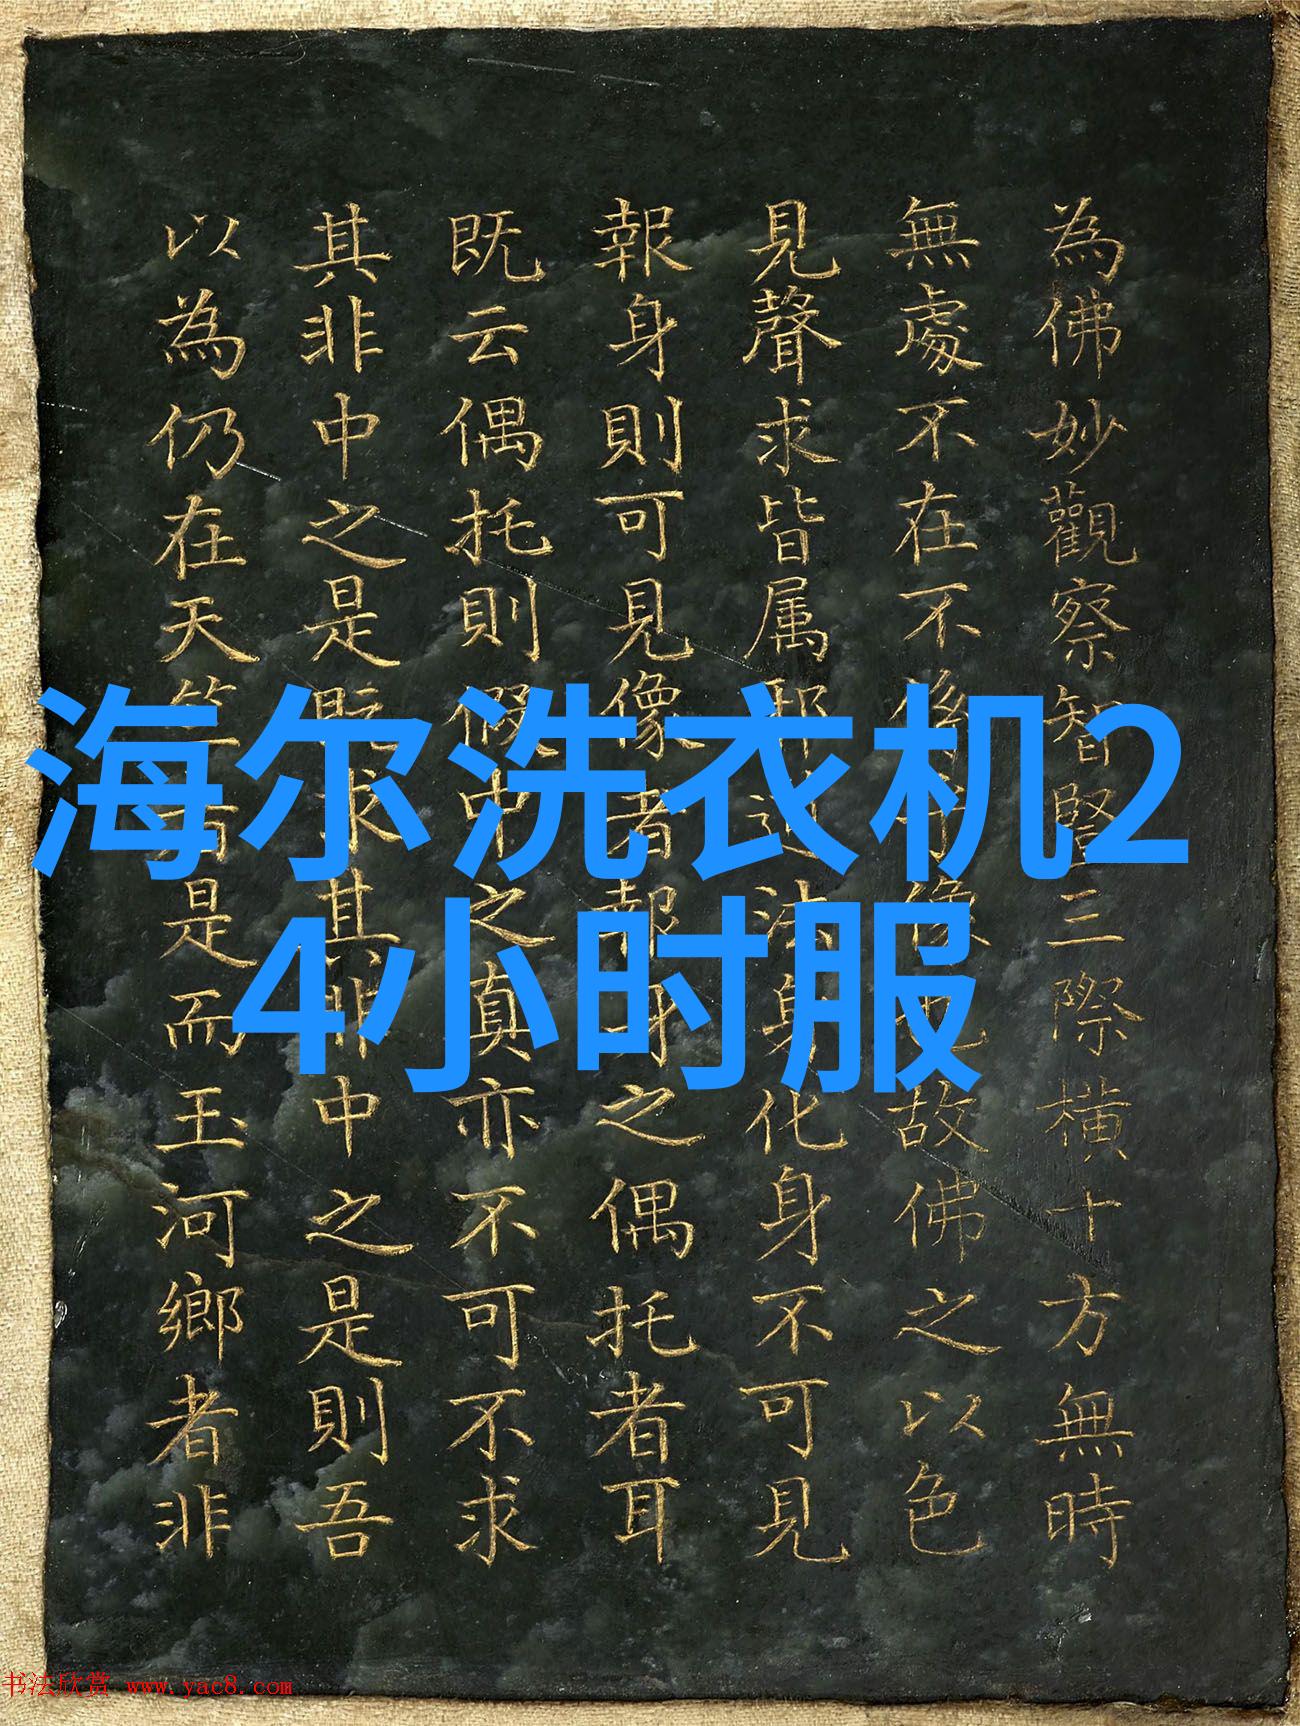 為佛妙觀察智竪三際横十方無時
無處不在不于像見故佛之以色
見聲求皆属邪法身化身不可見
報身則可見像者報身之偶托者耳
既云偶托則假中之真亦不可不求
其非中之是既求其非中之是則吾
以為仍在天竺者是而玉河鄉者非
海尔洗衣机2
4小时服
书法欣赏 www.yac8.com